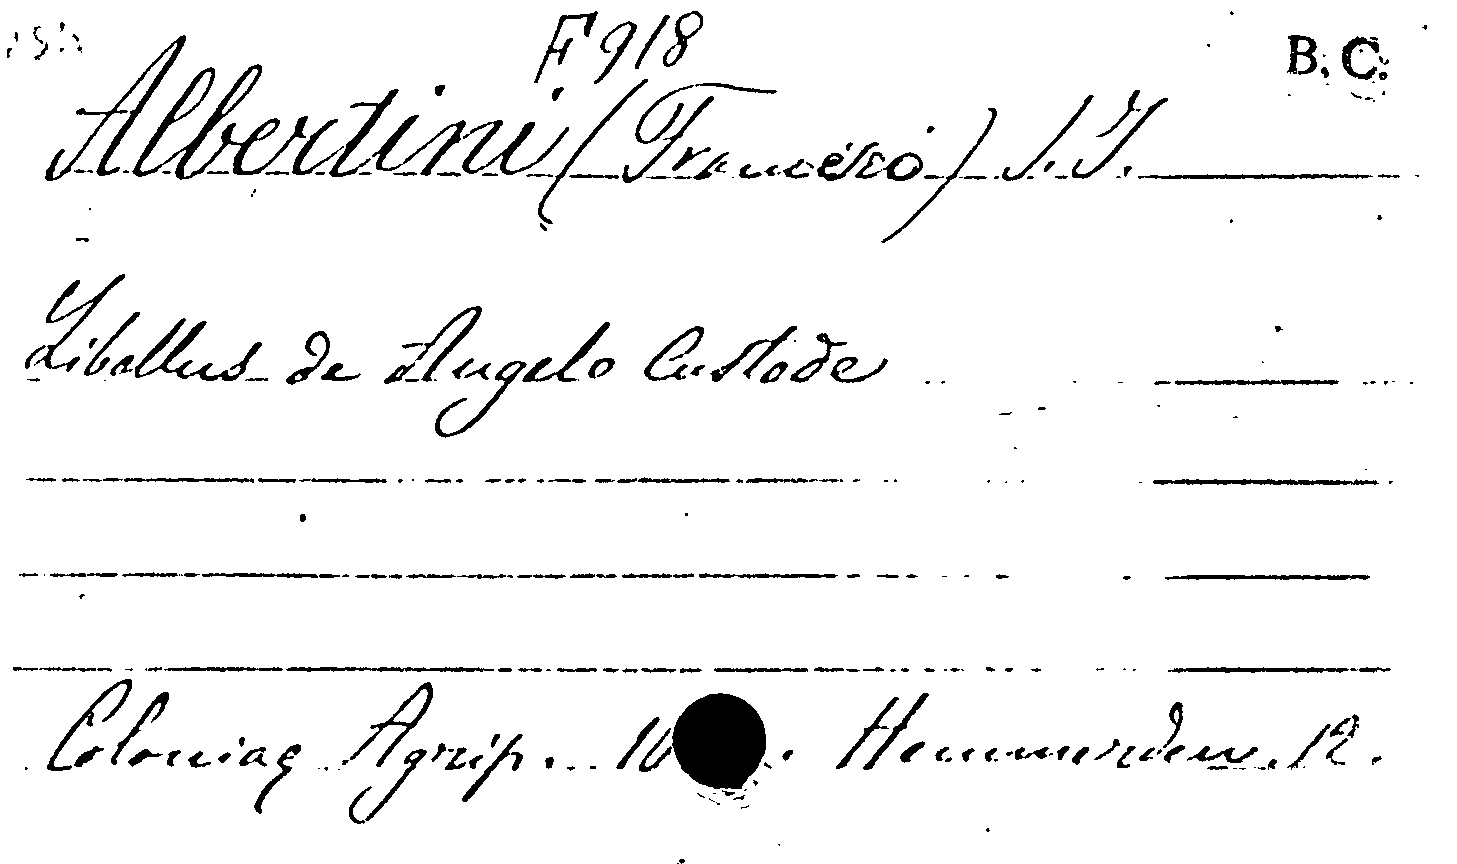 F 918
B. C.
Albertini (Francesco) S. J.
Libellus de Angelo Custode
Coloniae Agrip. Hemmerden. 12.